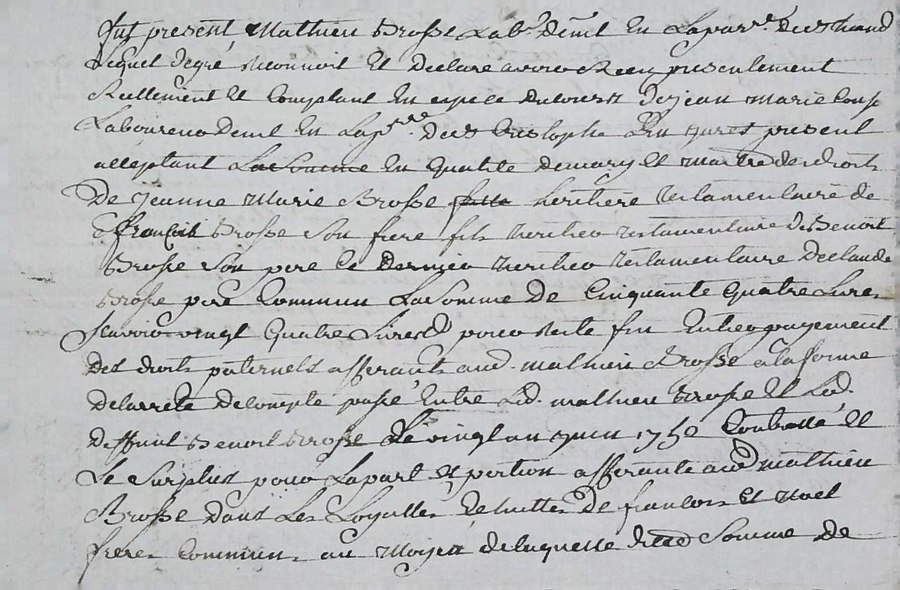 fut present Mathieu Brosse Lab.r dem.t En Laparr.e de St chamd
Lequel degré Reconnoit Et Declare avoir Receu presentement
Reellement Et Comptant En espece de jean marie
Laboureur dem.t En Lap.sse de St cristophe En present
acceptant La Somme En qualité demary Et maitre des droits
De jeanne Marie Brosse fille heritiere testamentaire de
francois Brosse Son frere fils heritier testamentaire de Benoit
Brosse Son pere Ce dernier heritier testamentaire De claude
Brosse pere Commun La Somme De Cinquante quatre Livres
Scavoir vingt quatre Livres pour Reste fin Entier payement
Des droits paternels afferants aud. mathieu Brosse a la forme
delarreté De compte passé Entre Led. mathieu Brosse Et Led.
Deffunt Benoit Brosse Le vingt un juin Controllé Et
Le Surplus pour La part Et portion afferante aud mathieu
Brosse dans Les Loyalles de francois Et Noel
freres Communs au Moyen de laquelle Somme De